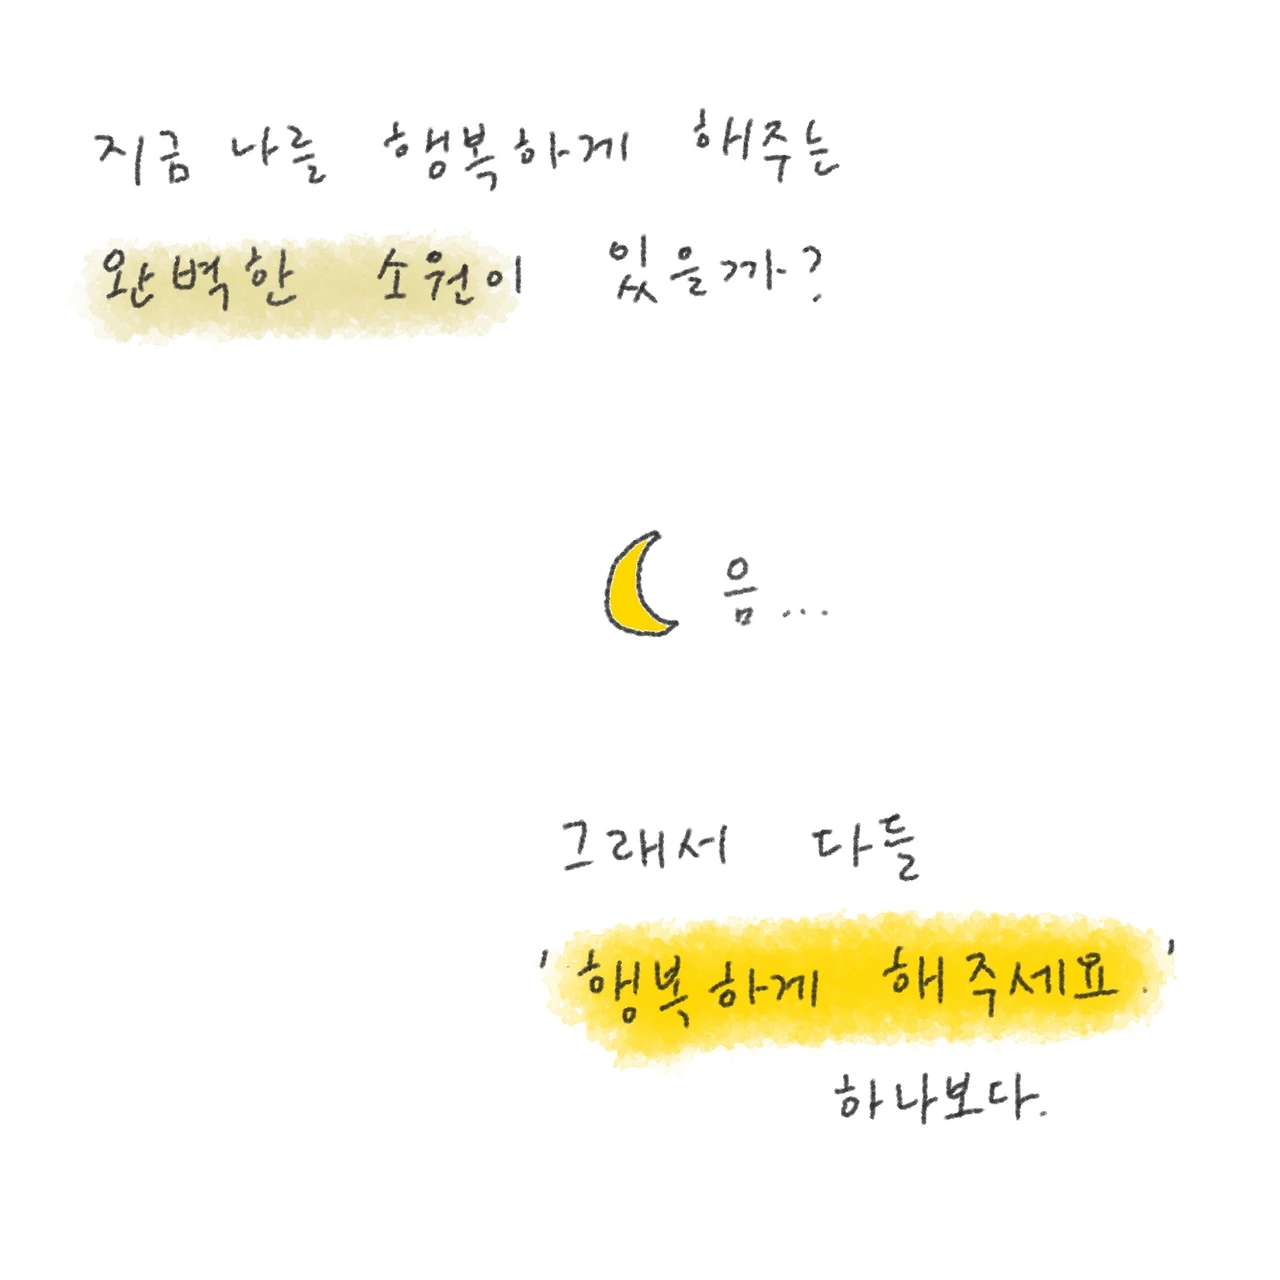 지금 나를 행복하게 해주는
완벽한 소원이 있을까?
음...
그래서 다들
'행복하게 해주세요.'
하나보다.